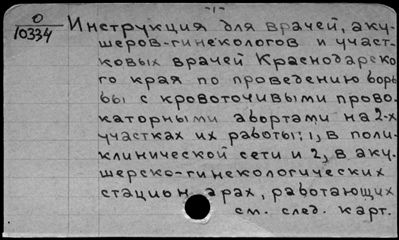 -1-
О
10334
Инструкция для врачей, аку-
шеров-гинекологов и участ-
ковых врачей Краснодарско
го края по проведению борь
бы с кровоточивыми прово-
каторными абортами на 2-х
участках их работы: 1, в поли-
клинической сети и 2, в аку-
шерско-гинекологических
стацион арах, работающих
см. след. карт.